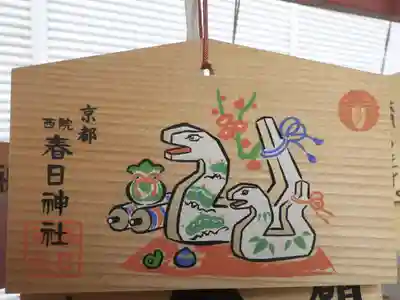 京都
西院
春日神社